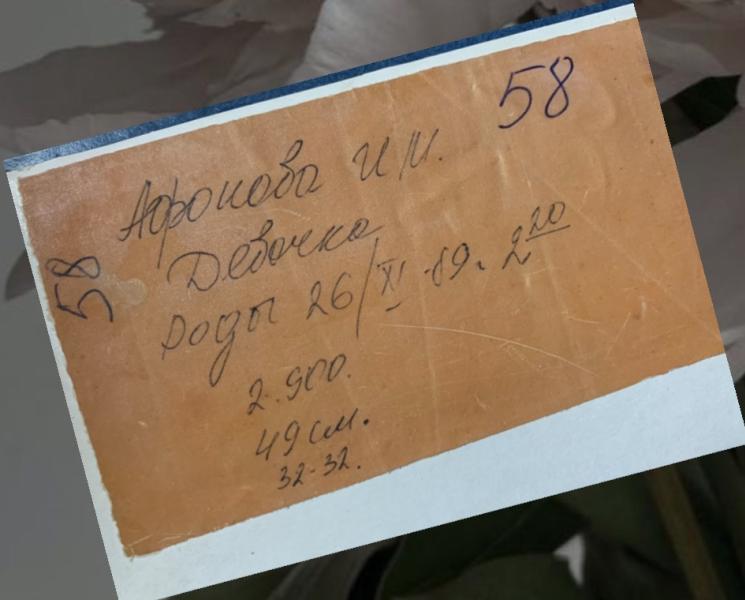 58
Афонова И М.
Девочка
роды 26/XI-89. 2 20
2.900.
49 см.
32-32.
58